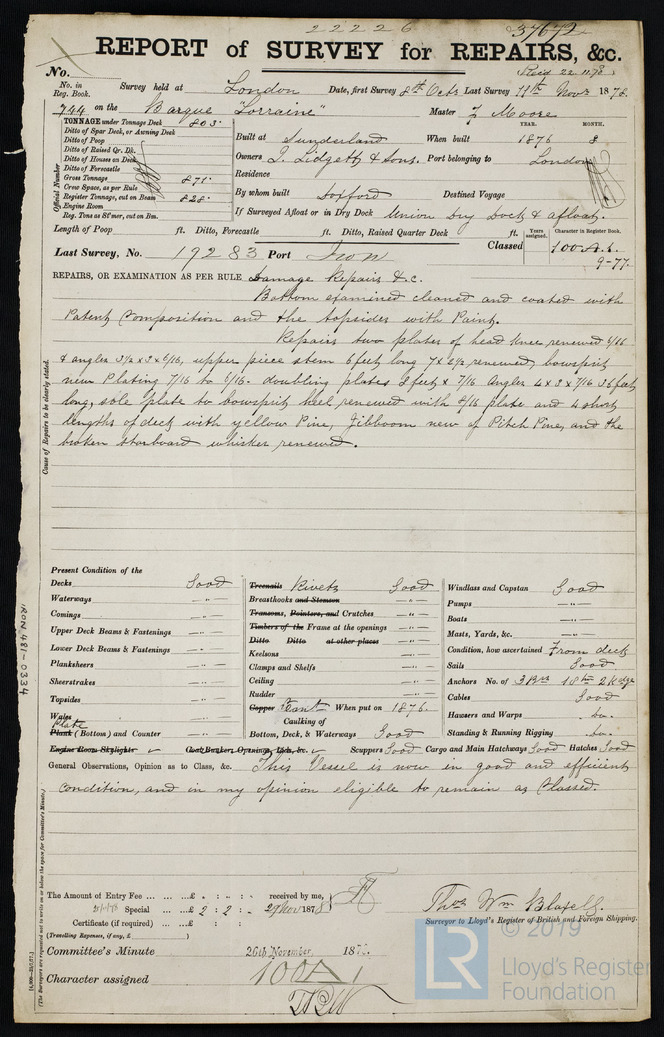 22226
37672
REPORT of SURVEY for REPAIRS, &c.
Recd 22.11.78
No.
No. in Reg. Book. Survey held at London Date, first Survey 8th Octr Last Survey 19th Novr 1878.
744 on the Barque "Lorraine" Master Z Moore
TONNAGE under Tonnage Deck 803.
Ditto of Spar Deck, or Awning Deck
Ditto of Poop
Ditto of Raised Qr. Dk.
Ditto of Houses on Deck
Ditto of Forecastle
Gross Tonnage 871.
Crew Space, as per Rule
Register Tonnage, cut on Beam 828.
Engine Room
Reg. Tons as St'mer, cut on Bm.
Official Number
YEAR. MONTH.
Built at Sunderland When built 1876 8
Owners J. Lidgett & Sons. Port belonging to London
Residence
By whom built Doxford Destined Voyage
If Surveyed Afloat or in Dry Dock Union Dry Dock & afloat.
Length of Poop ft. Ditto, Forecastle ft. Ditto, Raised Quarter Deck ft.
Years assigned. Character in Register Book.
Last Survey, No. 19283 Port Iron Classed 100 A.1.
9-77.
REPAIRS, OR EXAMINATION AS PER RULE Damage Repairs &c.
Bottom examined cleaned and coated with
Patent Composition and the topsides with Paint.
Repairs two plates of head knee renewed 6/16
& angles 3½ x 3 x 6/16, upper piece stem 6 feet long 7 x 2½ renewed, bowsprit
new Plating 7/16 to 6/16. doubling plates 8 feet x 7/16 Angles 4 x 3 x 7/16 36 feet
long, sole plate to bowsprit heel renewed with 8/16 plate and 4 short
lengths of deck with yellow Pine, Jibboom new of Pitch Pine, and the
broken starboard whisker renewed.
Cause of Repairs to be clearly stated.
IRON 481-0334
Present Condition of the
Decks Good
Waterways —"—
Comings —"—
Upper Deck Beams & Fastenings —"—
Lower Deck Beams & Fastenings —"—
Planksheers —"—
Sheerstrakes —"—
Topsides —"—
Wales —"—
Plate
Plank (Bottom) and Counter —"—
Engine Room Skylights ✓
Treenails Rivets Good
Breasthooks and Stemson —"—
Transoms, Pointers, and Crutches —"—
Timbers of the Frame at the openings —"—
Ditto Ditto at other places
Keelsons —"—
Clamps and Shelfs —"—
Ceiling —"—
Rudder —"—
Copper Paint When put on 1878.
Caulking of
Bottom, Deck, & Waterways Good
Coal Bunker Openings, Lids, &c. ✓
Windlass and Capstan Good
Pumps —"—
Boats —"—
Masts, Yards, &c. —"—
Condition, how ascertained From deck
Sails Good
Anchors No. of 3 Brs 1 Stm 2 Kedge
Cables Good
Hawsers and Warps do.
Standing & Running Rigging do.
Scuppers Good Cargo and Main Hatchways Good Hatches Good
General Observations, Opinion as to Class, &c. This Vessel is now in good and efficient
condition, and in my opinion eligible to remain as Classed.
(The Surveyors are requested not to write on or below the space for Committee's Minute.)
The Amount of Entry Fee ... £ : : received by me,
Special ... £ 2 : 2 : - 29 Nov 1878
Certificate (if required) ... £ :
(Travelling Expenses, if any, £ )
Thos. Wm. Blaxell.
Surveyor to Lloyd's Register of British and Foreign Shipping.
Committee's Minute 26th November, 1878.
Character assigned 100A1
© 2019
LR
Lloyd's Register
Foundation